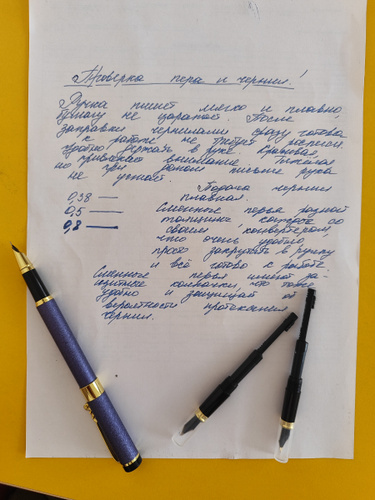 Проверка пера и чернил!
Ручка пишет мягко и плавно,
бумагу не царапает. После
заправки чернилами сразу готова
к работе, не требует расписки.
Удобно держать в руке. Красивая,
привлекаю внимание. Тяжела
но при долгом письме рука
не устаёт.
Подача чернил
плавная.
0,38
0,5
0,8
Сменные перья разной
толщины со
своим конвертером,
что очень удобно,
просто закрутить в ручку
и всё готово к работе.
Сменные перья имеют за-
щитные колпачки, что тоже
удобно и защищает от
вероятности протекания
чернил.